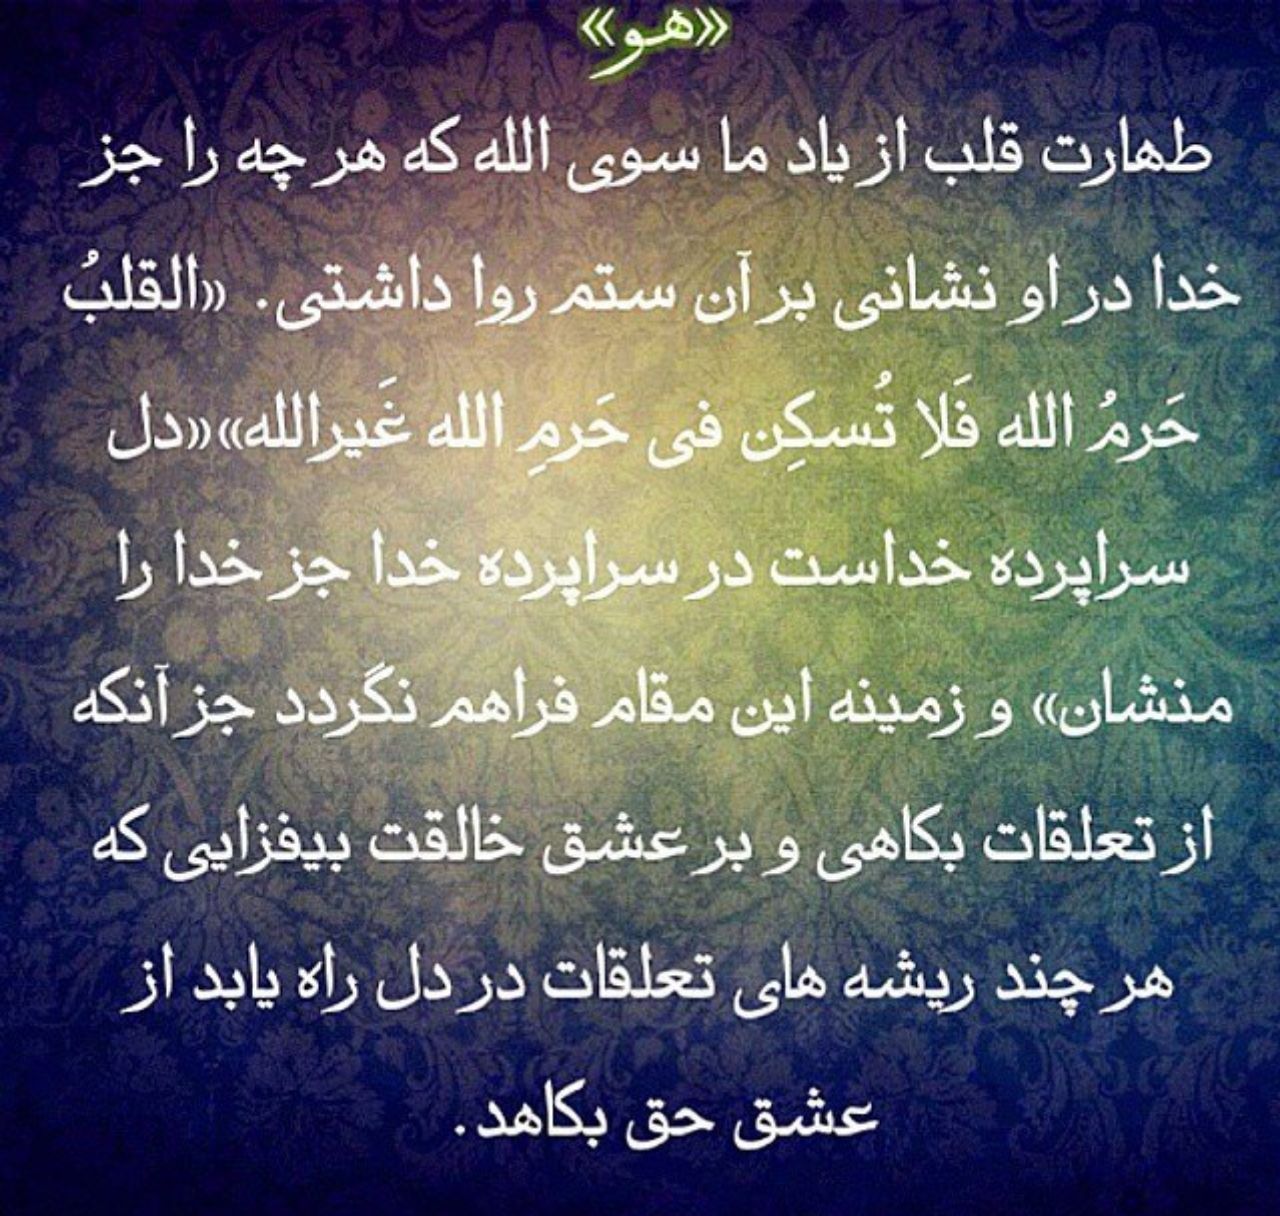 «هو»
طهارت قلب از یاد ما سوی الله که هر چه را جز
خدا در او نشانی بر آن ستم روا داشتی. «القلبُ
حَرمُ الله فَلا تُسکِن فی حَرمِ الله غَیرالله»«دل
سراپرده خداست در سراپرده خدا جز خدا را
منشان» و زمینه این مقام فراهم نگردد جز آنکه
از تعلقات بکاهی و بر عشق خالقت بیفزایی که
هر چند ریشه های تعلقات در دل راه یابد از
عشق حق بکاهد.